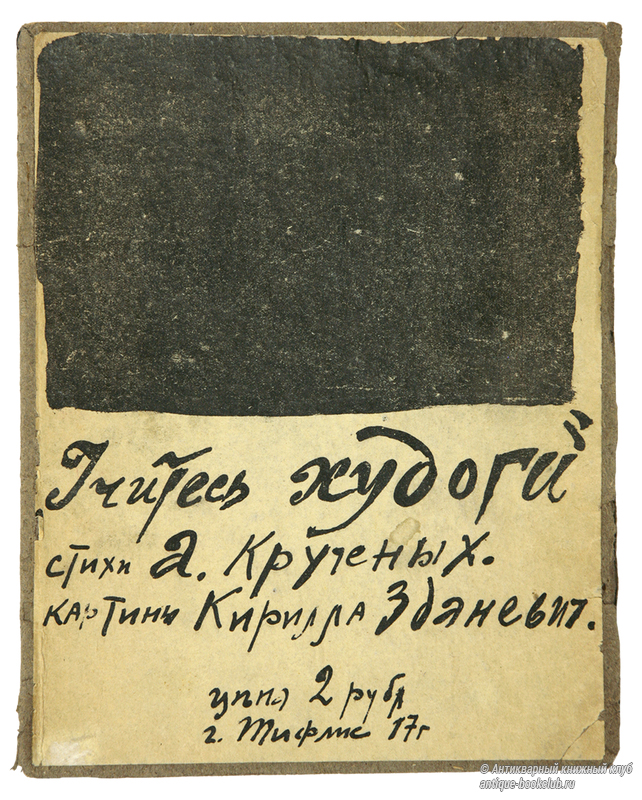 „Учитесь худоги"
стихи а. Крученых.
картины Кирилла Зданевич.
цена 2 рубл
г. Тифлис 17г
© Антикварный книжный клуб
antique-bookclub.ru